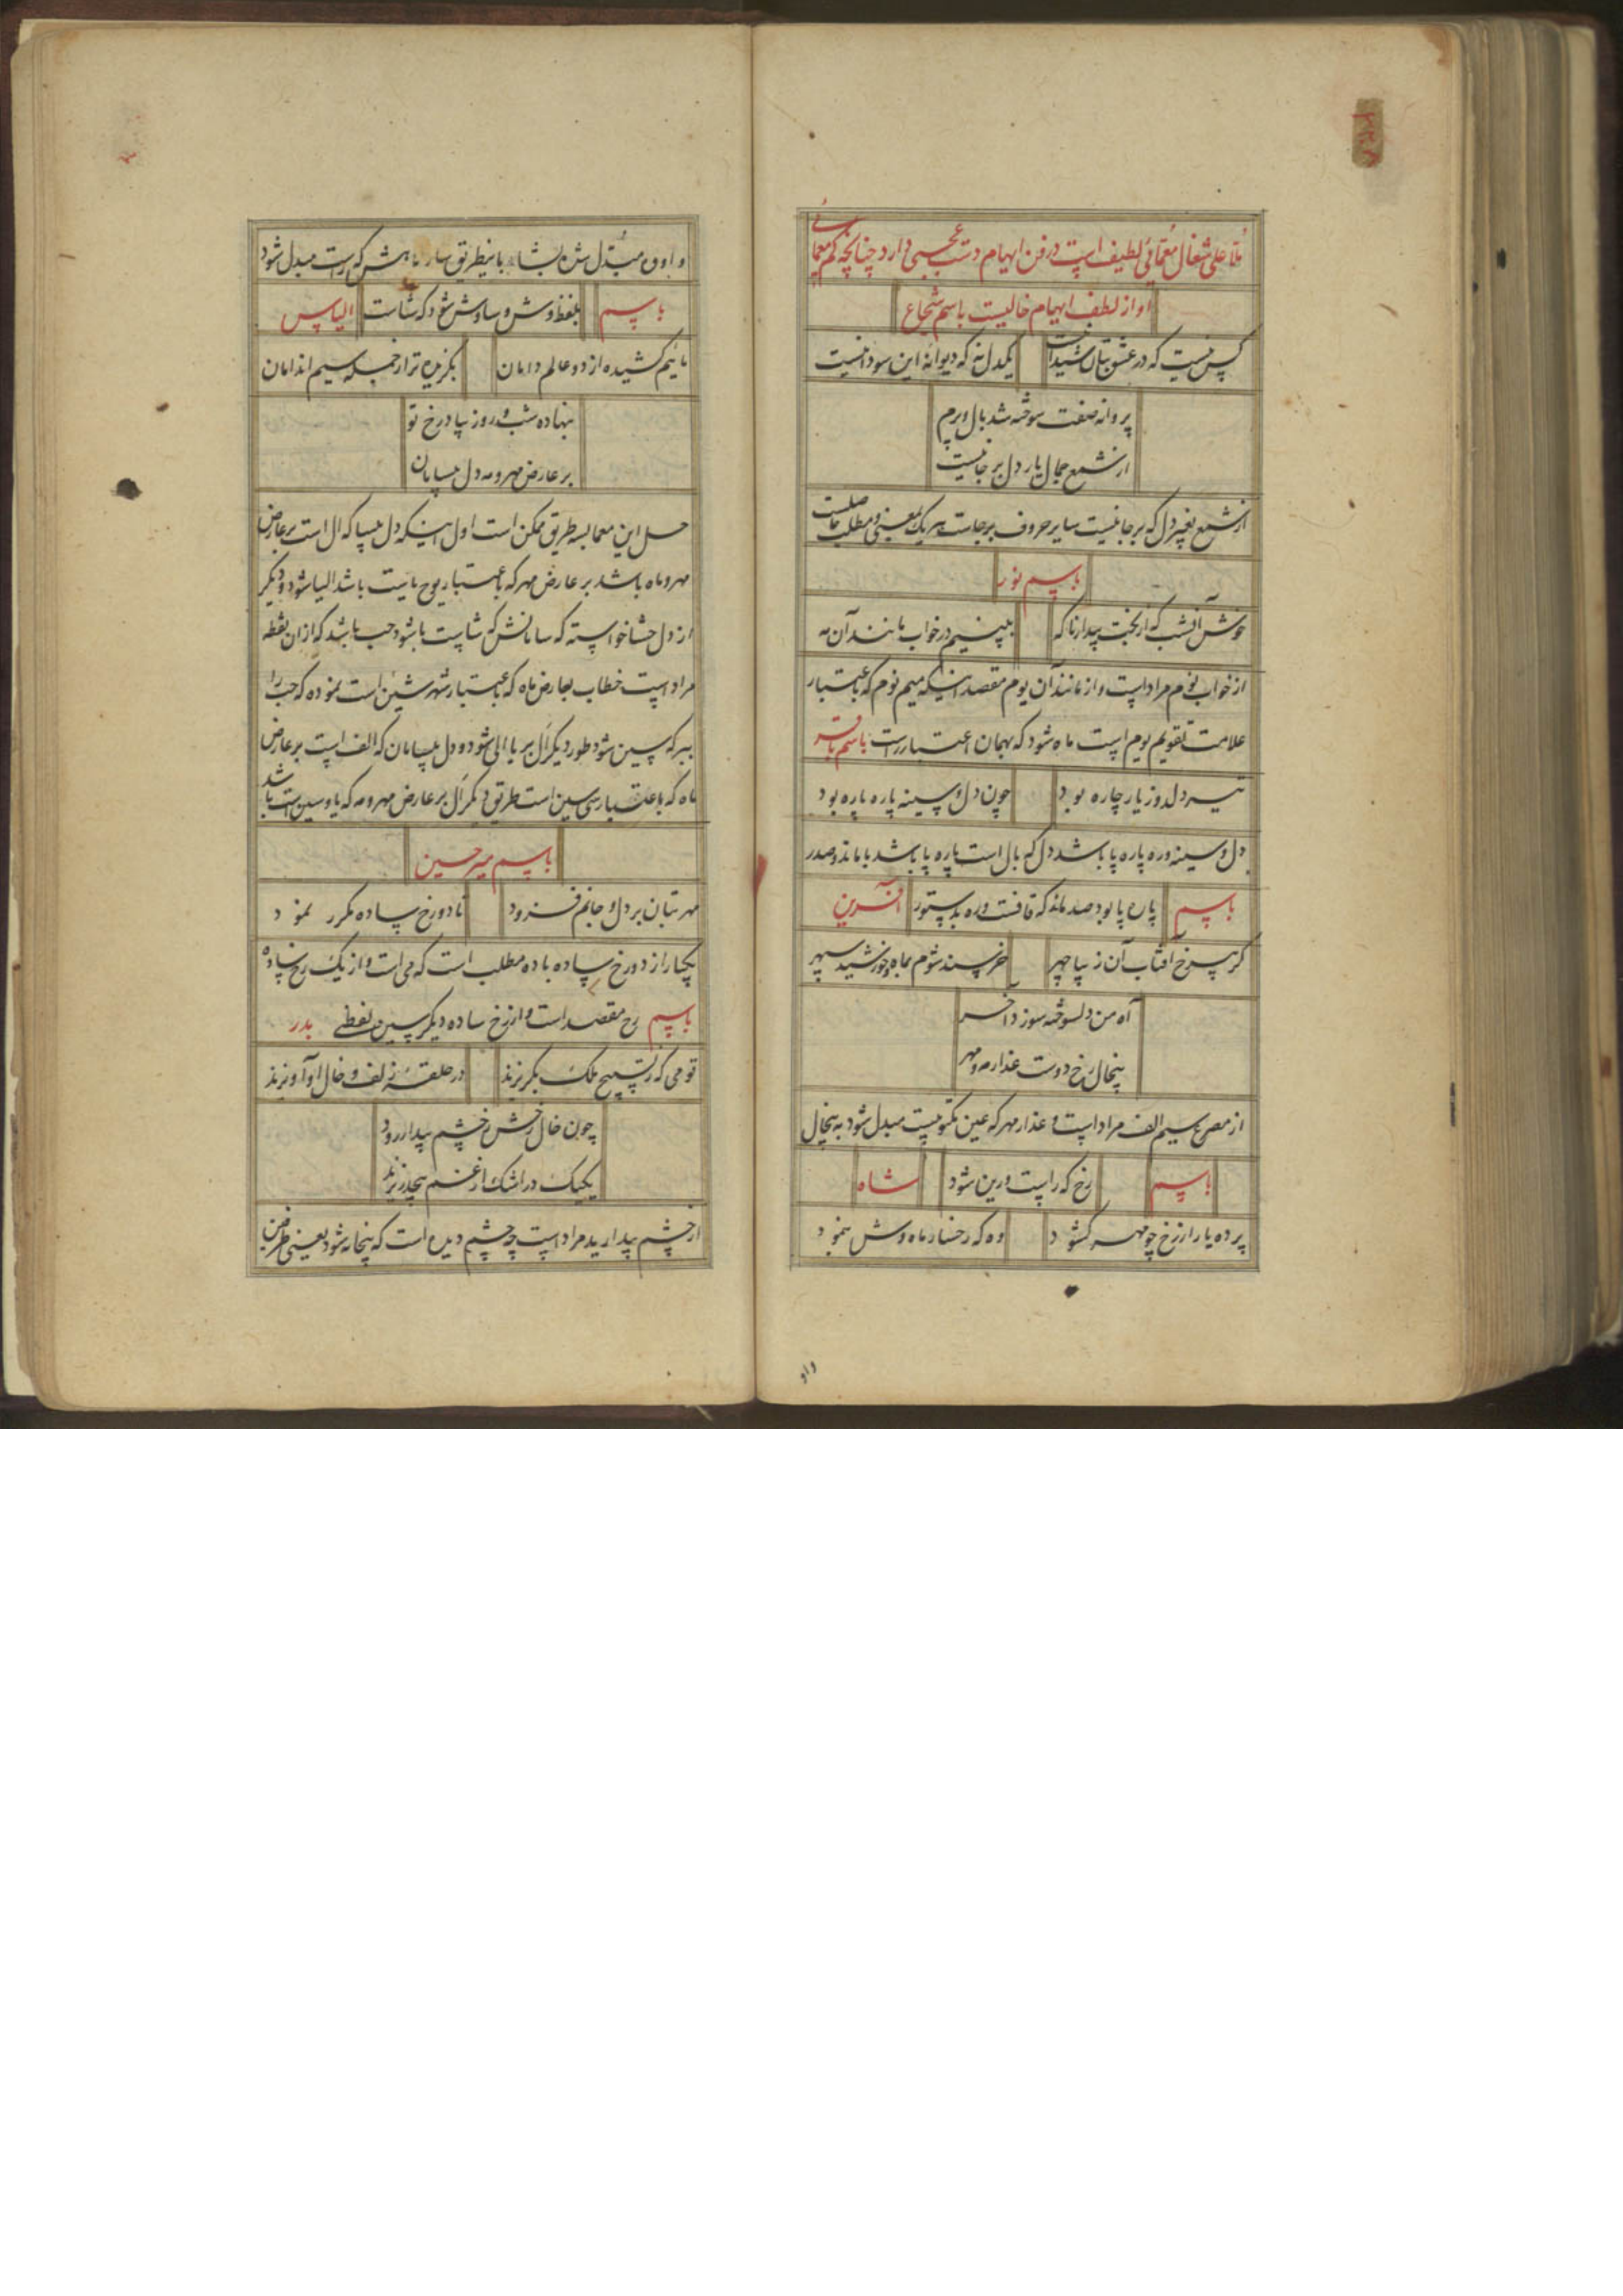 ملا علی شغال معمائی لطیف است در فن ابهام دست عجبی دارد چنانچه کم معمائی
او از لطف ابهام خالیست باسم شجاع
کس نیست که در عشق بتان شیدا نیست
یکدل نه که دیوانهٔ این سودا نیست
پروانه صفت سوخته شد بال و پرم
از شمع جمال یار دل بر جا نیست
از شمع بغیر دل که بر جا نیست سایر حروف بر جاست هر یک بمعنی و مطلب حاصلست
باسم نور
خوش آنشب که از بخت بیدار ناگه
ببینیم در خواب مانند آن مه
از خواب نوم مراد است و از مانند آن یوم مقصد اینکه میم نوم که باعتبار
علامت تقویم یوم است ماه شود که بهمان اعتبار راست باسم باقر
تیر دلدوز یار چاره بود
چون دل و سینه پاره پاره بود
دل و سینه و ره پاره پا باشد دل که بال است پاره پا باشد با ماند و صدر
پاره پا بود صد ماند که قافست و ره بدستور
باسم
آفرین
گر برخ آفتاب آن زیبا چهر
خرسند شوم بماه و خورشید سپهر
آه من دلسوخته سوزد آخر
بیخال رخ دوست عذار مه و مهر
از مصرع سیم الف مراد است و عذار مهر که عین مکتوبیست مبدل شود به بیخال
رخ که راست و رین شود
باسم
شاه
پرده یار از رخ چو مهر گشود
وه که رخسار ماه وش بنمود
واو
واو مبدل شده بشا با نیطریق که راست مبدل شود
بلفظ وش و ساوش شود که شاست
باسم
الیاس
مائیم کشیده از دو عالم دامان
بگزیده ترا ز جمله سیم اندامان
بنهاده شب و روز بپا در رخ تو
بر عارض مهر و مه دل بیسامان
حل این معما بسه طریق ممکن است اول اینکه دل بیسا که ال است بر عارض
مهر و ماه باشد بر عارض مهر که باعتبار یوح یاست باشد الیا شود و دیگر
از دل حشا خواسته که سامانش که شاست با شود حب باشد که از ان نقطه
مراد است خطاب بعارض ماه که باعتبار شهر شین است نموده که حب را
ببر که سین شود طور دیگر ال بر یا الی شود و دل بیسامان که الف است بر عارض
ماه که باعتبار سی سین است طریق دیگر ال بر عارض مهر و مه که یا و سین است باشد
باسم میر حسین
مهر بتان بر دل و جانم فزود
تا دو رخ ساده مکرر نمود
یکبار از دو رخ ساده با ده مطلب است که می است و از یک رخ ساده
رح مقصد است و از رخ ساده دیگر سین لفظی
باسم
بدر
قومی که ز تسبیح ملک بگریزند
در حلقهٔ زلف و خال او آویزند
چون خال رخش ز چشم بیدار رود
یکیک در اشک از غم بیحد ریزند
از چشم بیدار ید مراد است چه چشم دیده است که بیخانه شود یعنی